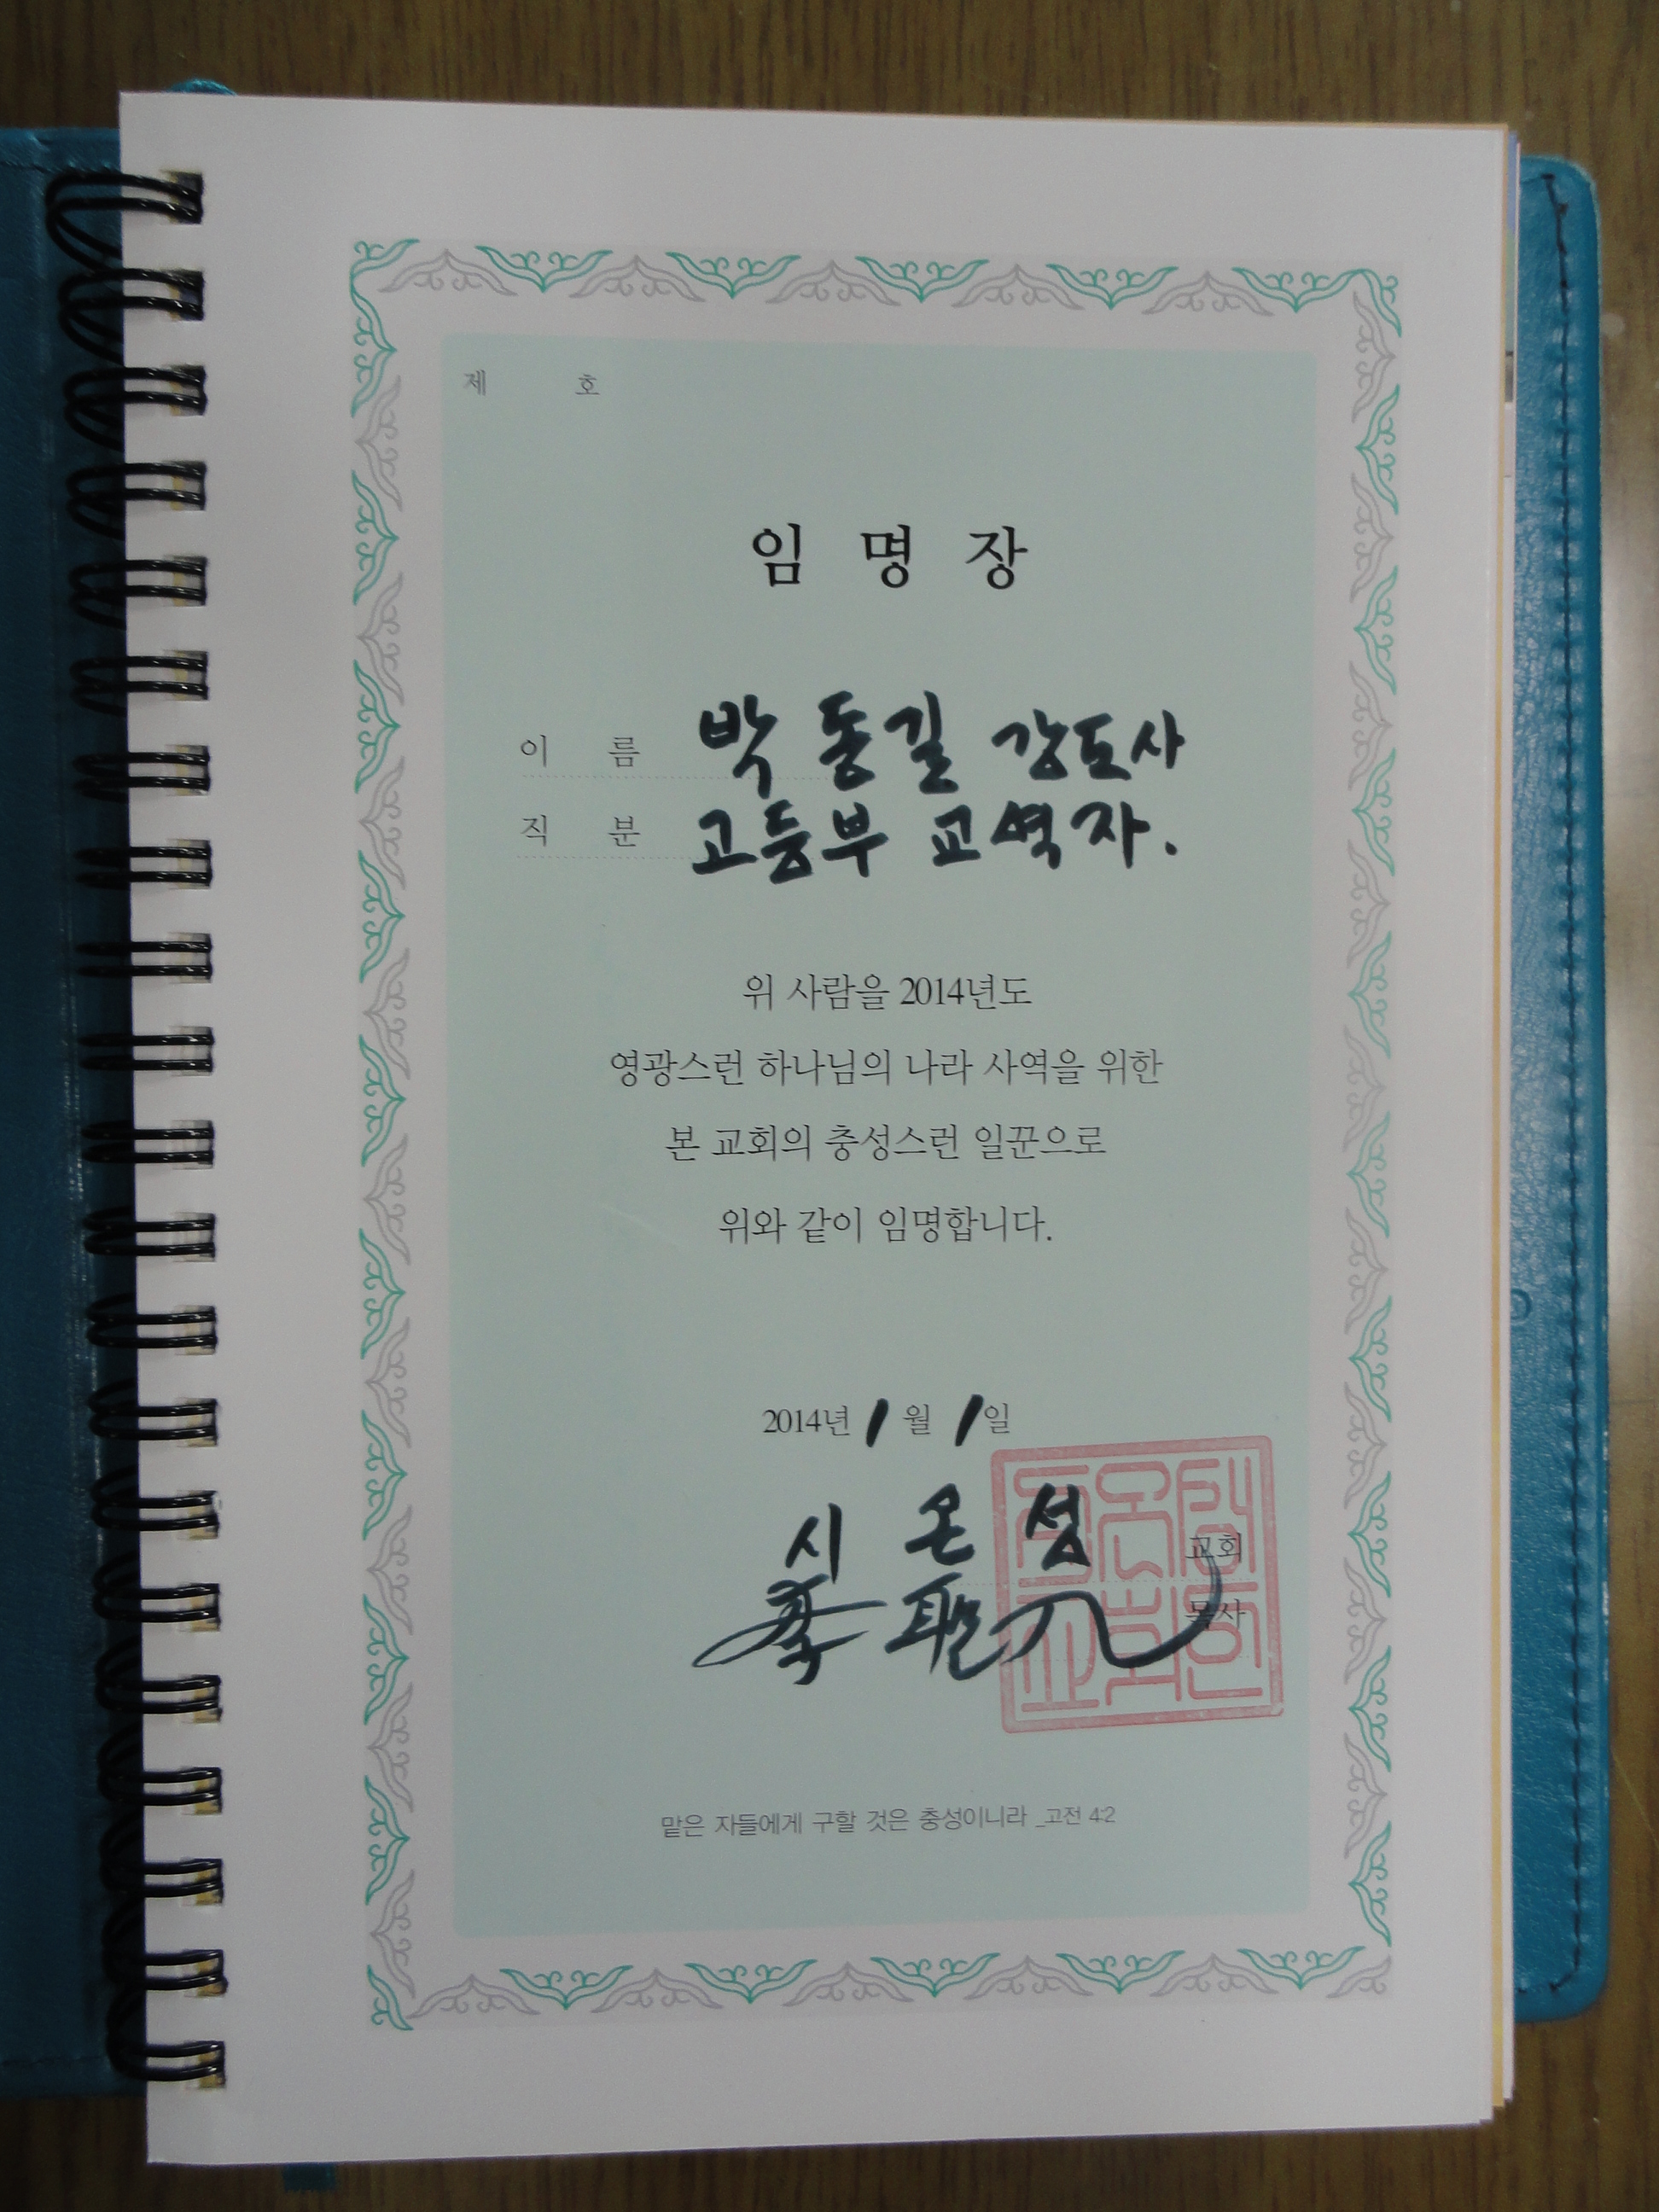 제 호
임 명 장
이 름 박 동길 강도사
직 분 고등부 교역자.
위 사람을 2014년도
영광스런 하나님의 나라 사역을 위한
본 교회의 충성스런 일꾼으로
위와 같이 임명합니다.
2014년 1월 1일
시 온 성 교회
목사
맡은 자들에게 구할 것은 충성이니라 _고전 4:2